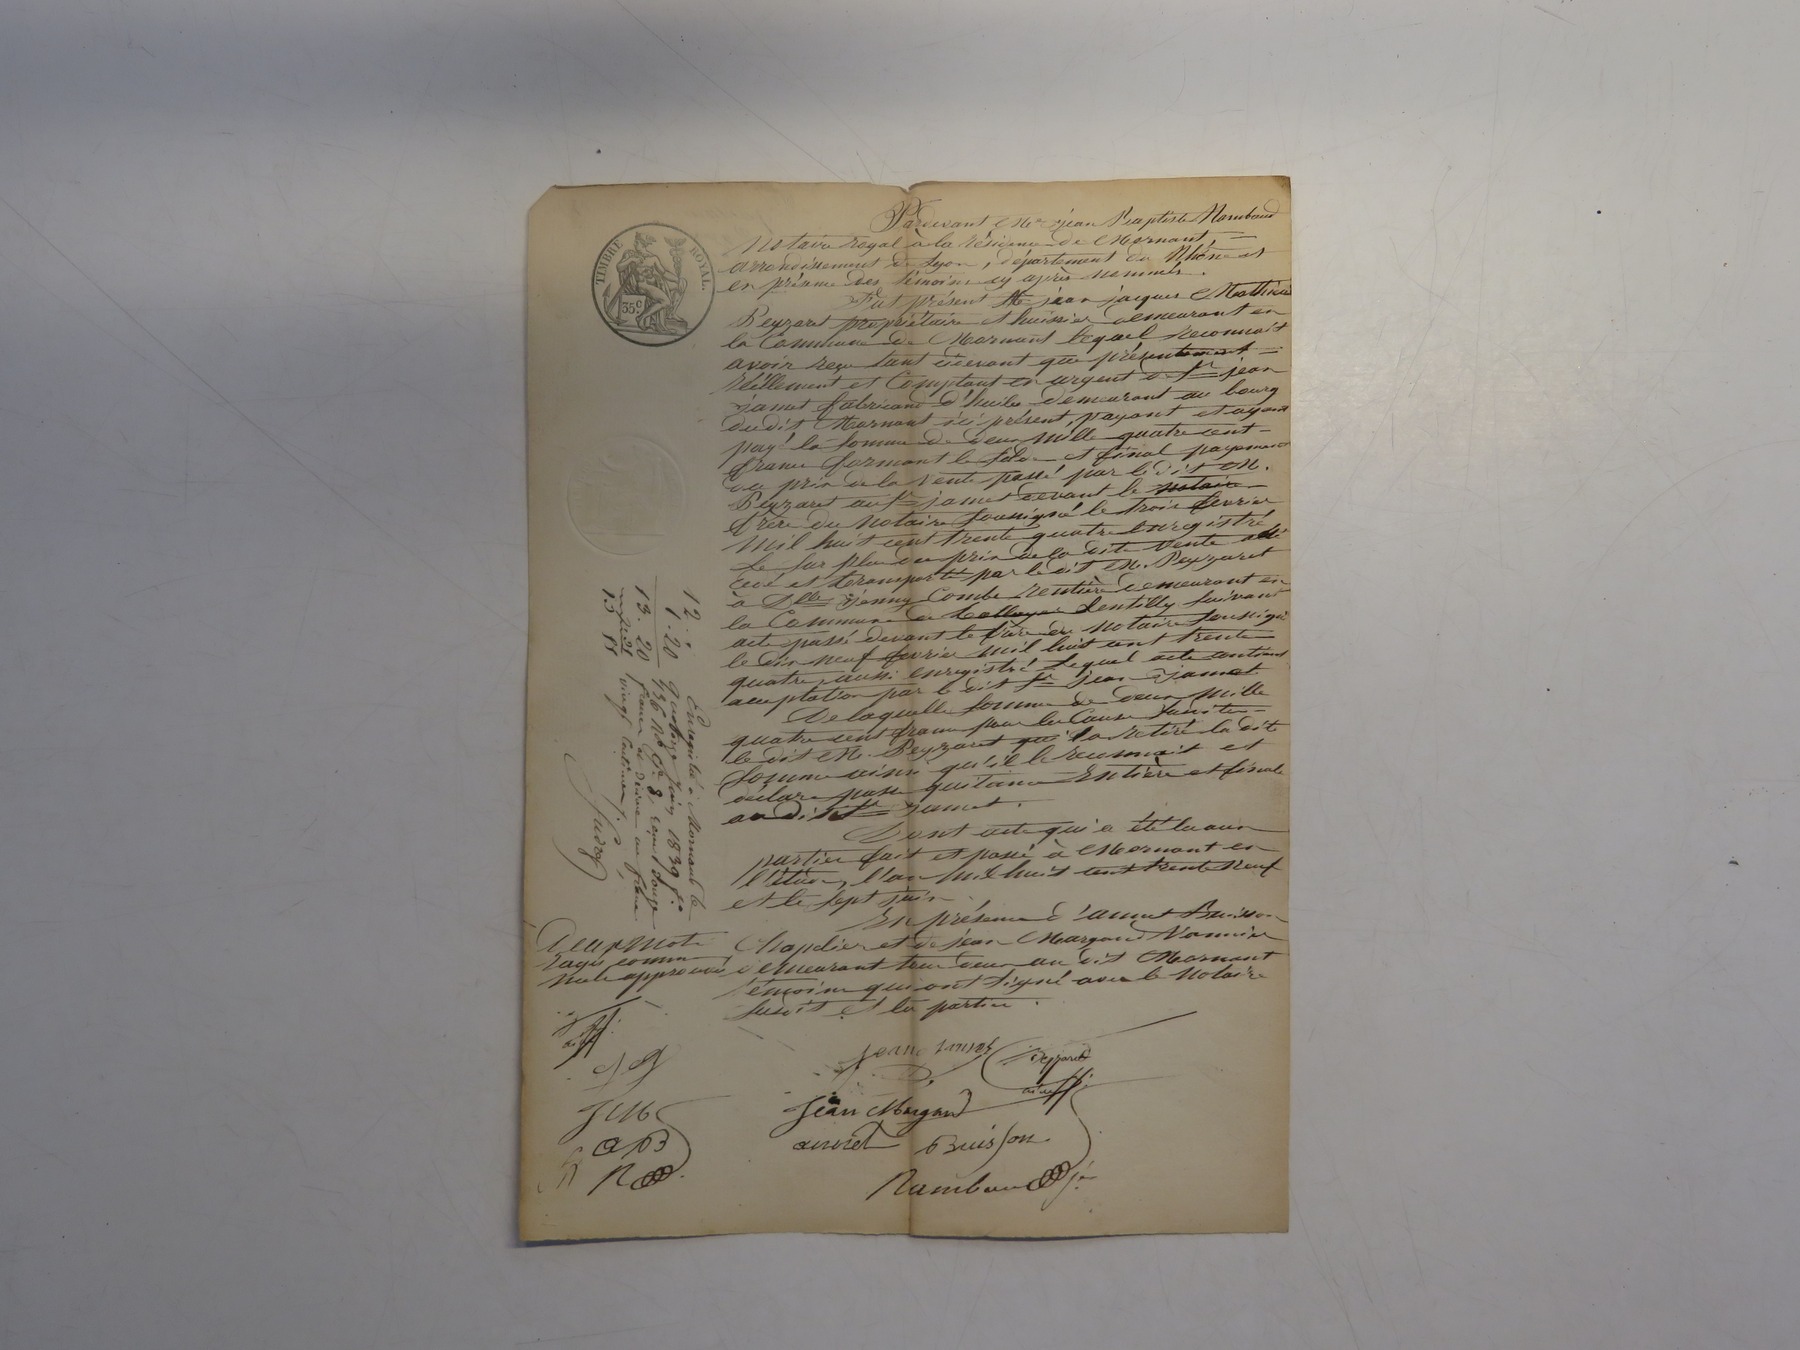 TIMBRE ROYAL.
35 c.
Pardevant Me jean Baptiste Rambaud
Notaire royal à la résidence de Mornant
arrondissement de Lyon, département du Rhône et
en présence des témoins cy après nommés.
Fut présent M. jean jacques Mathieu
Peyzaret propriétaire et huissier demeurant en
la Commune de Mornant lequel reconnait
avoir reçu tant cidevant que présentement
réellement et Comptant en argent de Sr jean
jamet fabricand d'huile demeurant au bourg
du dit Mornant ici présent, payant et ayant
payé la Somme de deux Mille quatre cent
francs formant le Solde et final payement
du prix de la Vente passé par le dit M.
Peyzaret au Sr jamet devant le notaire
frère du Notaire Soussigné le trois fevrier
Mil huit cent trente quatre enregistré
Le Sur plus du prix de la dite Vente a été
cédé et transporté par le dit M. Peyzaret
à Dlle jenny Combe rentière demeurant en
la Commune de Lentilly Suivant
acte passé devant le frère du Notaire Soussigné
le dix neuf fevrier Mil huit cent trente
quatre, aussi enregistré Lequel acte contient
acceptation par le dit Sr jean jamet
De laquelle Somme de deux Mille
quatre cent francs pour les Causes Susdites
le dit M. Peyzaret qui a retiré la dite
Somme ainsi qu'il le reconnait et
déclare passe quitance Entière et finale
au dit Sr jamet.
Dont acte qui a été lu aux
parties fait et passé à Mornant en
l'étude, l'an Mil huit cent trente neuf
et le Sept juin.
En présence d'annet Buisson
Chapelier et de jean Margand Vannier
demeurant tous deux au dit Mornant
témoins qui ont Signé avec le Notaire
Susdit et les parties.
Enregistré à Mornant le
quatorze juin 1839 fo
196 Ro Ce 8, reçu douze
francs et décime un franc
vingt centimes.
12. "
1. 20
13. 20
Deux Mots
rayés comme
nuls approuvés
J M
A B
R
jean jamet
Peyzaret
Jean Margand
annet Buisson
Rambaud jne